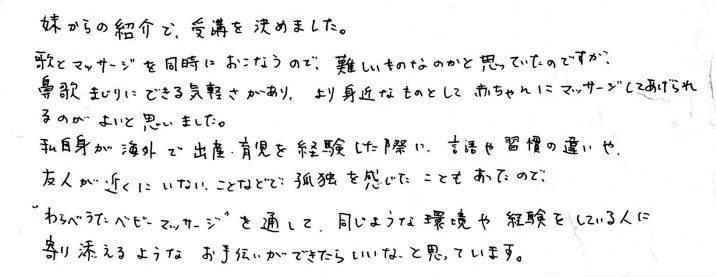 妹からの紹介で、受講を決めました。
歌とマッサージを同時におこなうので、難しいものなのかと思っていたのですが、
鼻歌まじりにできる気軽さがあり、より身近なものとして赤ちゃんにマッサージしてあげられ
るのがよいと思いました。
私自身が海外で出産・育児を経験した際に、言語や習慣の違いや、
友人が近くにいないことなどで孤独を感じたこともあったので、
"わらべうたベビーマッサージ"を通して、同じような環境や経験をしている人に
寄り添えるようなお手伝いができたらいいな、と思っています。